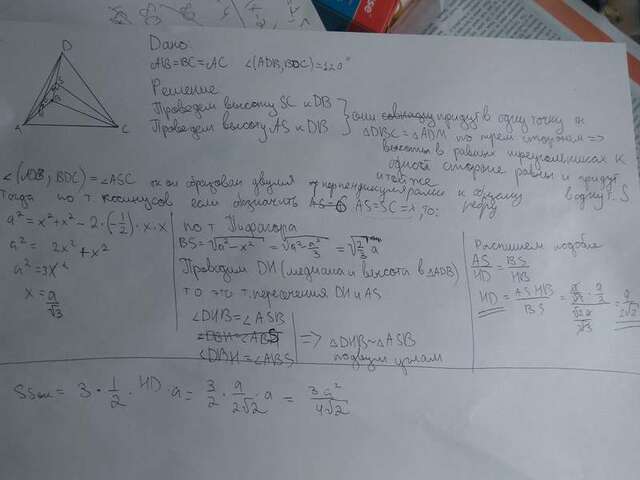 D
A
C
Дано
AB=BC=AC ∠(ADB, BDC)=120°
Решение
Проведем высоту SC к DB
Проведем высоту AS к DB
они придут в одну точку тк
△DBC = △ADM по трем сторонам =>
высоты в равных треугольниках к
одной стороне равны и придут
в одну т. S
∠(ADB, BDC) = ∠ASC тк он образован двумя перпендикулярами к общему ребру
Тогда по т косинусов если обозначить AS=SC=x, то:
a² = x²+x² - 2·(-1/2)·x·x
a² = 2x² + x²
a² = 3x²
x = a/√3
по т Пифагора
BS = √(a²-x²) = √(a²-a²/3) = √(2/3) a
Проводим DH (медиана и высота в △ADB)
то это т. пересечения DH и AS
∠DHB = ∠ASB
∠DBH = ∠ABS
=> △DHB ~ △ASB
по двум углам
Распишем подобие
AS/HD = BS/HB
HD = AS·HB/BS
= a/2√2
Sбок = 3 · 1/2 · HD · a = 3/2 · a/2√2 · a = 3a²/4√2